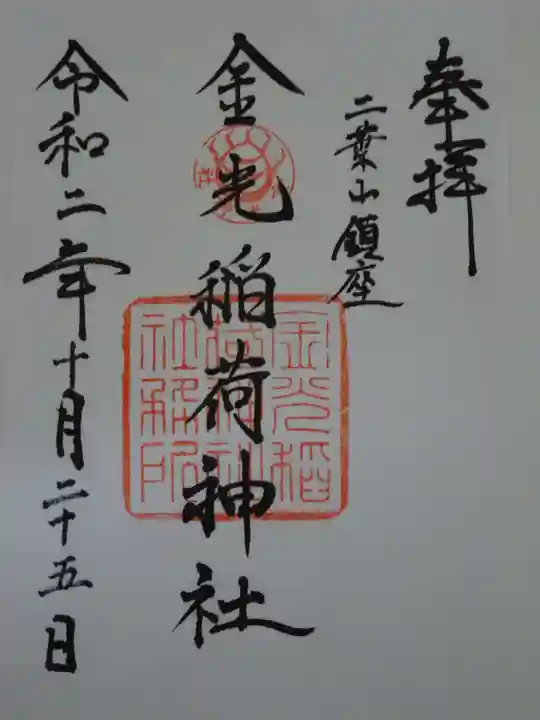 奉拝
二葉山鎮座
金光稲荷神社
金光稲荷神社務所
令和二年十月二十五日